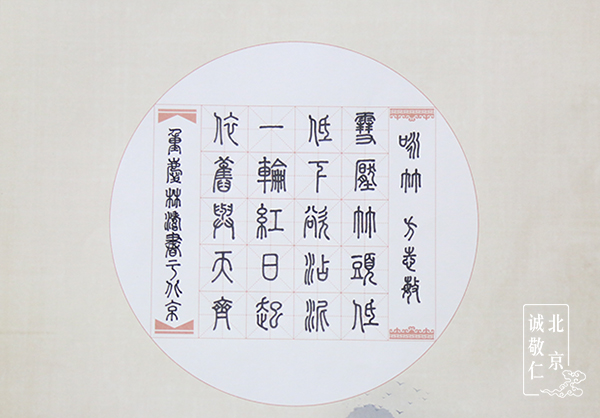 咏竹 方志敏
雪壓竹頭低
低下欲沾泥
一輪紅日起
依舊與天齊
重慶林書于北京
北京
诚敬仁